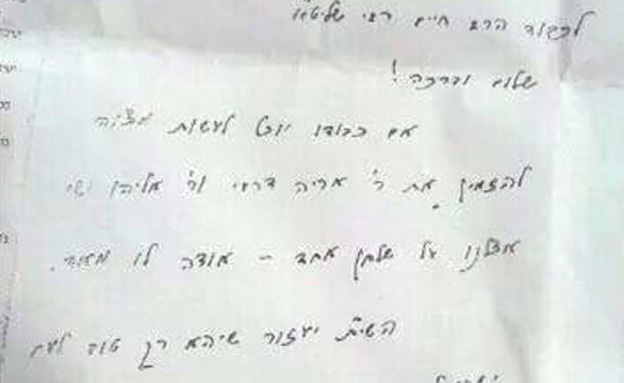 לכבוד הרב חיים רבי שליט"א
שלום וברכה!
אם כבודו יוכל לעשות מצוה
להזמין את ר' אריה דרעי ור' אליהו ישי
אצלנו על שלחן אחד - אודה לו מאוד.
השי"ת יעזור שיהא רק טוב לעם